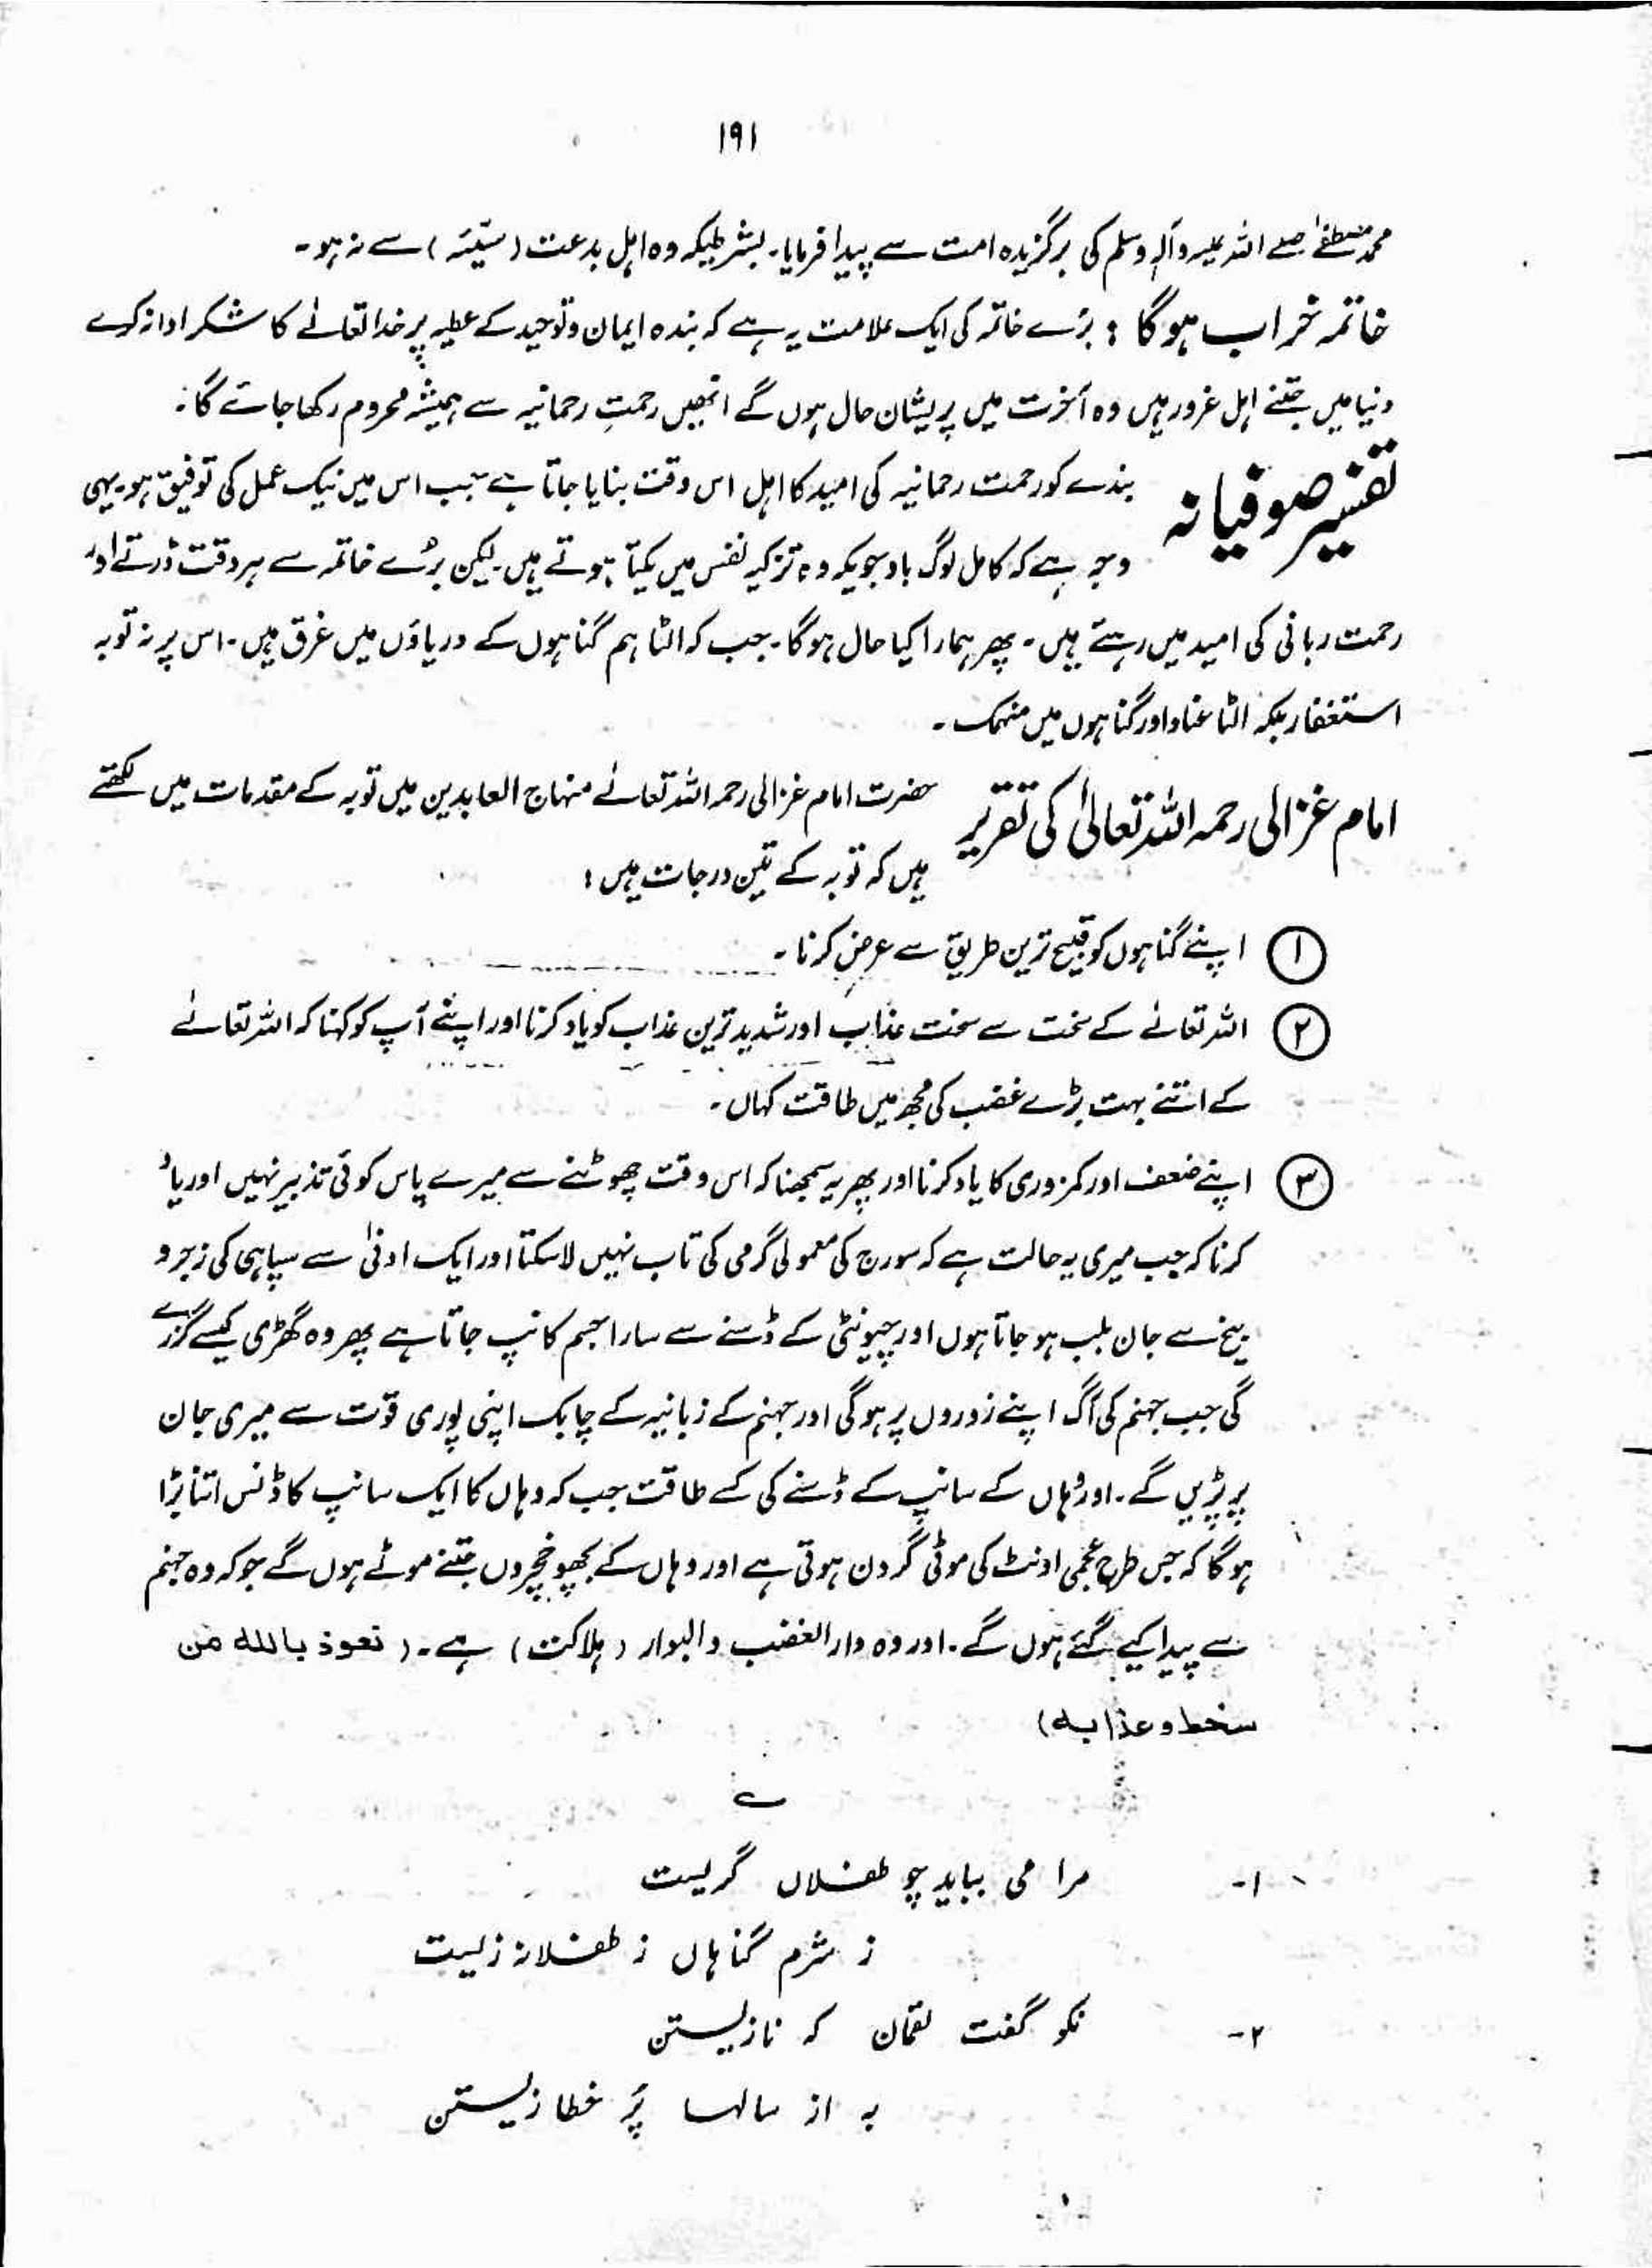 ۱۹۱
محمد مصطفےٰ صلے اللہ علیہ وآلہ وسلم کی برگزیدہ امت سے پیدا فرمایا۔ بشرطیکہ وہ اہل بدعت (سیّئہ) سے نہ ہو۔
خاتمہ خراب ہوگا : بُرے خاتمہ کی ایک علامت یہ ہے کہ بندہ ایمان و توحید کے عطیہ پر خدا تعالےٰ کا شکر ادا نہ کرے
دنیا میں جتنے اہل غرور ہیں وہ آخرت میں پریشان حال ہوں گے انھیں رحمتِ رحمانیہ سے ہمیشہ محروم رکھا جائے گا۔
تفسیر صوفیانہ بندے کو رحمت رحمانیہ کی امید کا اہل اس وقت بنایا جاتا ہے جب اس میں نیک عمل کی توفیق ہو۔ یہی
وجہ ہے کہ کامل لوگ باوجویکہ وہ تزکیہ نفس میں یکتا ہوتے ہیں۔ لیکن بُرے خاتمہ سے ہر وقت ڈرتے اور
رحمت ربانی کی امید میں رہتے ہیں۔ پھر ہمارا کیا حال ہوگا۔ جب کہ الٹا ہم گناہوں کے دریاؤں میں غرق ہیں۔ اس پر نہ توبہ
استغفار بلکہ الٹا عناد اور گناہوں میں منہمک۔
امام غزالی رحمہ اللہ تعالیٰ کی تقریر حضرت امام غزالی رحمہ اللہ تعالےٰ منہاج العابدین میں توبہ کے مقدمات میں لکھتے
ہیں کہ توبہ کے تین درجات ہیں :
۱ اپنے گناہوں کو قبیح ترین طریق سے عرض کرنا۔
۲ اللہ تعالےٰ کے سخت سے سخت عذاب اور شدید ترین عذاب کو یاد کرنا اور اپنے آپ کو کہنا کہ اللہ تعالےٰ
کے اتنے بہت بڑے غضب کی مجھ میں طاقت کہاں۔
۳ اپنے ضعف اور کمزوری کا یاد کرنا اور پھر یہ سمجھنا کہ اس وقت چھوٹنے سے میرے پاس کوئی تدبیر نہیں اور یاد
کرنا کہ جب میری یہ حالت ہے کہ سورج کی معمولی گرمی کی تاب نہیں لا سکتا اور ایک ادنیٰ سے سپاہی کی زجر و
بیخ سے جان بلب ہو جاتا ہوں اور چیونٹی کے ڈسنے سے سارا جسم کانپ جاتا ہے پھر وہ گھڑی کیسے گزرے
گی جب جہنم کی آگ اپنے زوروں پر ہوگی اور جہنم کے زبانیہ کے چابک اپنی پوری قوّت سے میری جان
پر پڑیں گے۔ اور وہاں کے سانپ کے ڈسنے کی کے طاقت جب کہ وہاں کا ایک سانپ کا ڈنس اتنا بڑا
ہوگا کہ جس طرح عجمی اونٹ کی موٹی گردن ہوتی ہے اور وہاں کے بچھو خچروں جتنے موٹے ہوں گے جو کہ وہ جہنم
سے پیدا کیے گئے ہوں گے۔ اور وہ دار الغضب والبوار (ہلاکت) ہے۔ (نعوذ باللہ من
سخط و عذابہ)
ے
۱- مرا می بباید چو طفلاں گریست
ز شرم گناہاں ز طفلانہ زلیت
۲- نکو گفت لقمان کہ نازیستن
بہ از سالہا پُر خطا زیستن